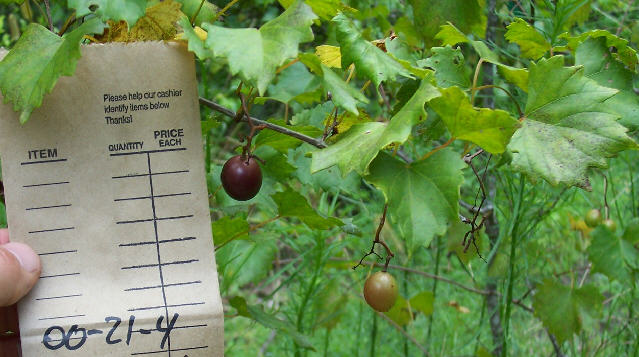 Please help our cashier
identify items below
Thanks!
ITEM QUANTITY PRICE
EACH
00-21-4